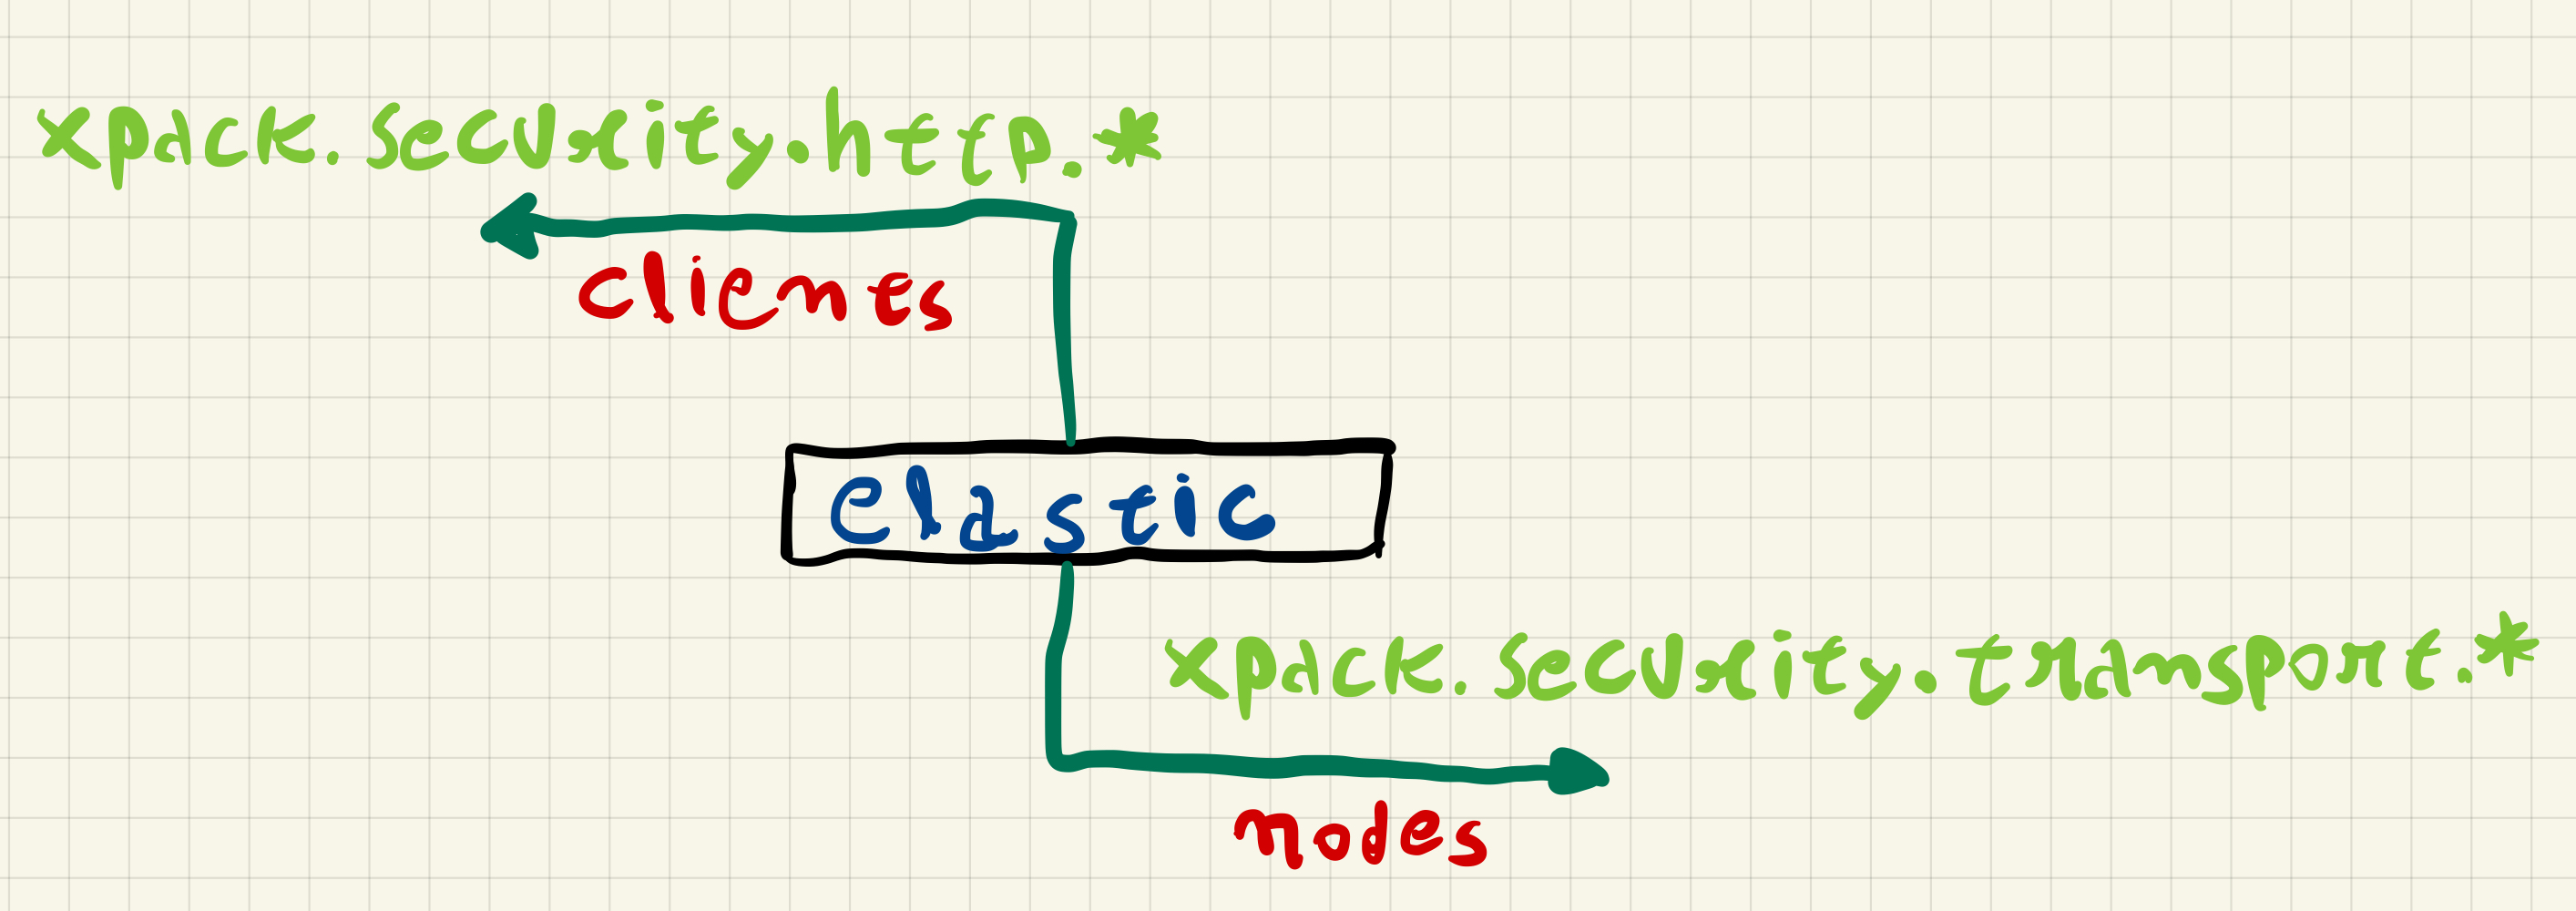 xpack.security.http.*
clients
elastic
xpack.security.transport.*
nodes